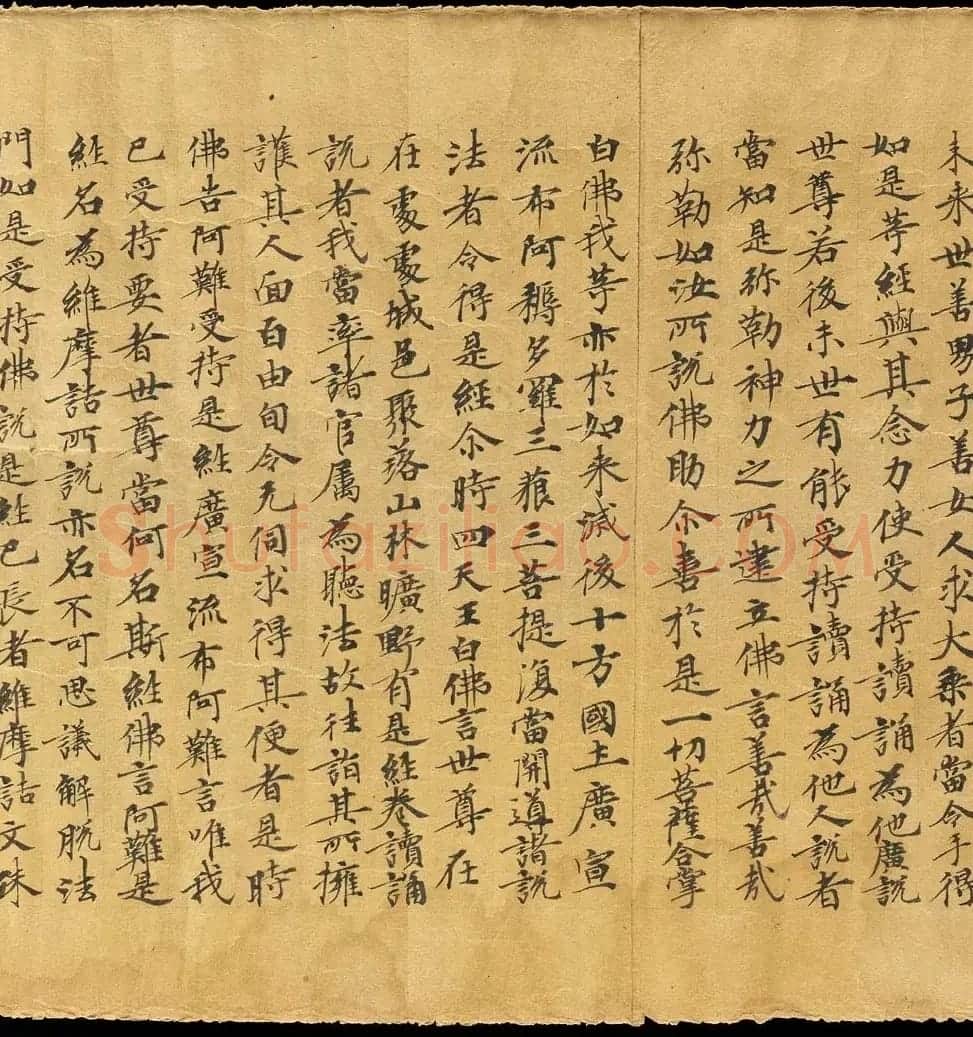 未来世善男子善女人求大乗者當令手得
如是等經與其念力使受持讀誦為他廣說
世尊若後末世有能受持讀誦為他人說者
當知是弥勒神力之所建立佛言善哉善哉
弥勒如汝所說佛助尒喜於是一切菩薩合掌
白佛我等亦於如来滅後十方國土廣宣
流布阿耨多羅三藐三菩提復當開導諸說
法者令得是經尒時四天王白佛言世尊在
在處處城邑聚落山林曠野有是經卷讀誦
說者我當率諸官属為聽法故往詣其所擁
護其人面百由旬令无伺求得其便者是時
佛告阿難受持是經廣宣流布阿難言唯我
已受持要者世尊當何名斯經佛言阿難是
經名為維摩詰所說亦名不可思議解脫法
門如是受持佛說是經已長者維摩詰文殊
Shufaziliao.COM